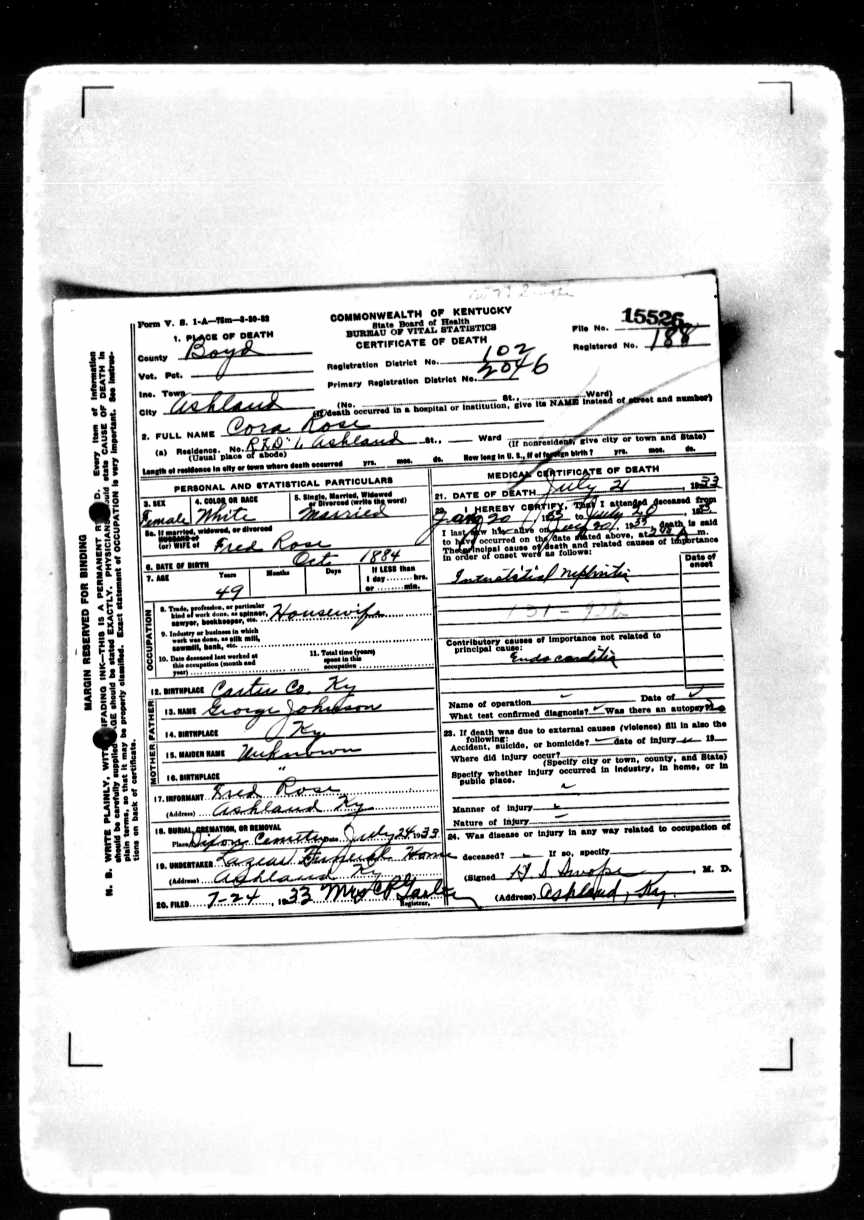 Form V. S. 1-A—75m—8-30-32
COMMONWEALTH OF KENTUCKY
State Board of Health
BUREAU OF VITAL STATISTICS
CERTIFICATE OF DEATH
File No. 15526
Registered No. 188
1. PLACE OF DEATH
County Boyd
Vot. Pct.
Inc. Town
City Ashland
Registration District No. 102
Primary Registration District No. 2046
(No. St., Ward)
(If death occurred in a hospital or institution, give its NAME instead of street and number)
2. FULL NAME Cora Rose
(a) Residence. No. RFD 1, Ashland St., Ward
(Usual place of abode) (If nonresident, give city or town and State)
Length of residence in city or town where death occurred yrs. mos. ds. How long in U. S., if of foreign birth? yrs. mos. ds.
PERSONAL AND STATISTICAL PARTICULARS
3. SEX Female
4. COLOR OR RACE White
5. Single, Married, Widowed or Divorced (write the word) Married
5a. If married, widowed, or divorced
HUSBAND of
(or) WIFE of Fred Rose
6. DATE OF BIRTH Oct 1884
7. AGE Years 49 Months Days If LESS than 1 day hrs. or min.
OCCUPATION
8. Trade, profession, or particular kind of work done, as spinner, sawyer, bookkeeper, etc. Housewife
9. Industry or business in which work was done, as silk mill, sawmill, bank, etc.
10. Date deceased last worked at this occupation (month and year)
11. Total time (years) spent in this occupation
12. BIRTHPLACE Carter Co. Ky
FATHER
13. NAME George Johnson
14. BIRTHPLACE Ky
MOTHER
15. MAIDEN NAME Unknown
16. BIRTHPLACE "
17. INFORMANT Fred Rose
(Address) Ashland Ky
18. BURIAL, CREMATION, OR REMOVAL
Place Dixon Cemetery July 24 1933
19. UNDERTAKER Lazear Funeral Home
(Address) Ashland Ky
20. FILED 7-24, 1933 Mrs C P
Registrar.
MEDICAL CERTIFICATE OF DEATH
21. DATE OF DEATH July 21 1933
22. I HEREBY CERTIFY, That I attended deceased from
Jan 20, 1933 to July 20, 1933
I last saw her alive on July 20, 1933 death is said
to have occurred on the date stated above, at A m.
The principal cause of death and related causes of importance
in order of onset were as follows:
Date of onset
Interstitial nephritis
131 -
Contributory causes of importance not related to
principal cause:
Endocarditis
Name of operation Date of
What test confirmed diagnosis? Was there an autopsy? No
23. If death was due to external causes (violence) fill in also the
following:
Accident, suicide, or homicide? date of injury 19
Where did injury occur?
(Specify city or town, county, and State)
Specify whether injury occurred in industry, in home, or in
public place.
Manner of injury
Nature of injury
24. Was disease or injury in any way related to occupation of
deceased? If so, specify
(Signed H S Swope, M. D.
(Address) Ashland, Ky.
MARGIN RESERVED FOR BINDING
N. B. WRITE PLAINLY, WITH UNFADING INK—THIS IS A PERMANENT RECORD. Every item of information
should be carefully supplied. AGE should be stated EXACTLY. PHYSICIANS should state CAUSE OF DEATH in
plain terms, so that it may be properly classified. Exact statement of OCCUPATION is very important. See instruc-
tions on back of certificate.